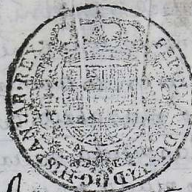 FERDINANDUS·VI·D·G·HISPANIAR·REX